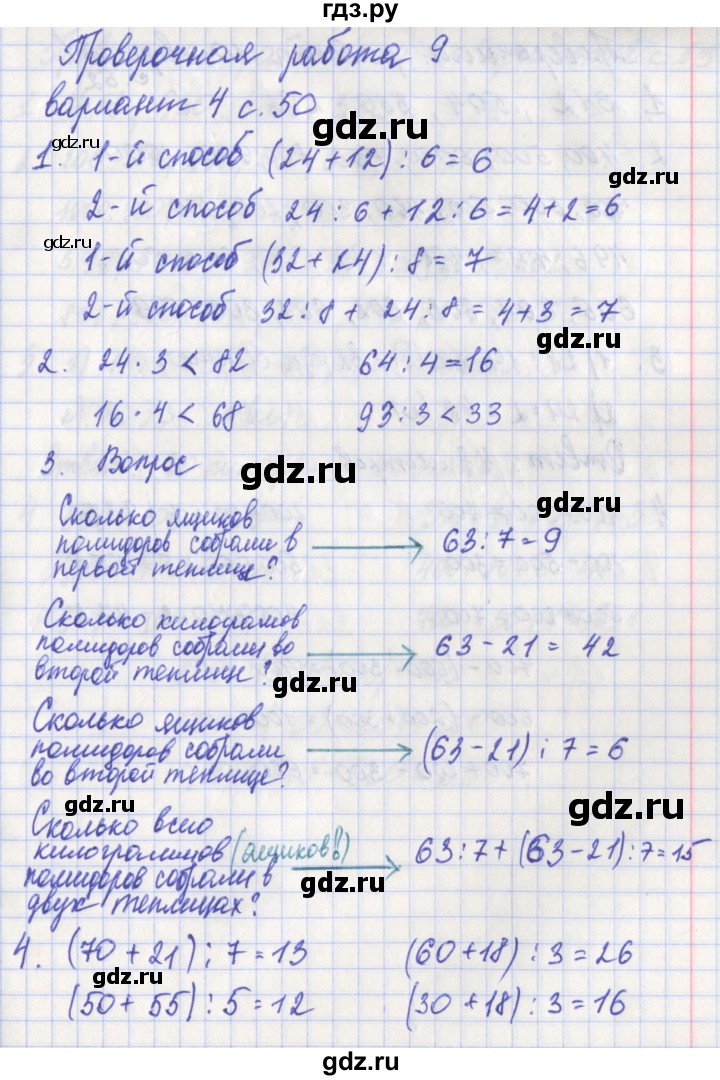 гдз.ру
Проверочная работа 9
вариант 4 с. 50
gdz.ru
gdz.ru
1. 1-й способ (24+12) : 6 = 6
gdz.ru
2-й способ 24 : 6 + 12 : 6 = 4+2 = 6
gdz.ru
1-й способ (32 + 24) : 8 = 7
2-й способ 32 : 8 + 24 : 8 = 4+3 = 7
gdz.ru
2. 24 · 3 < 82 64 : 4 = 16
16 · 4 < 68 93 : 3 < 33
3. Вопрос
gdz.ru
Сколько ящиков
помидоров собрали в
первой теплице?
63 : 7 = 9
gdz.ru
Сколько килограмов
помидоров собрали во
второй теплице?
63 - 21 = 42
gdz.ru
Сколько ящиков
помидоров собрали
во второй теплице?
(63 - 21) : 7 = 6
gdz.ru
gdz.ru
Сколько всего
килограммов (ящиков!)
помидоров собрали в
двух теплицах?
63 : 7 + (63 - 21) : 7 = 15
gdz.ru
4. (70 + 21) : 7 = 13 (60+18) : 3 = 26
gdz.ru
(50 + 55) : 5 = 12 (30 + 18) : 3 = 16
gdz.ru
gdz.ru